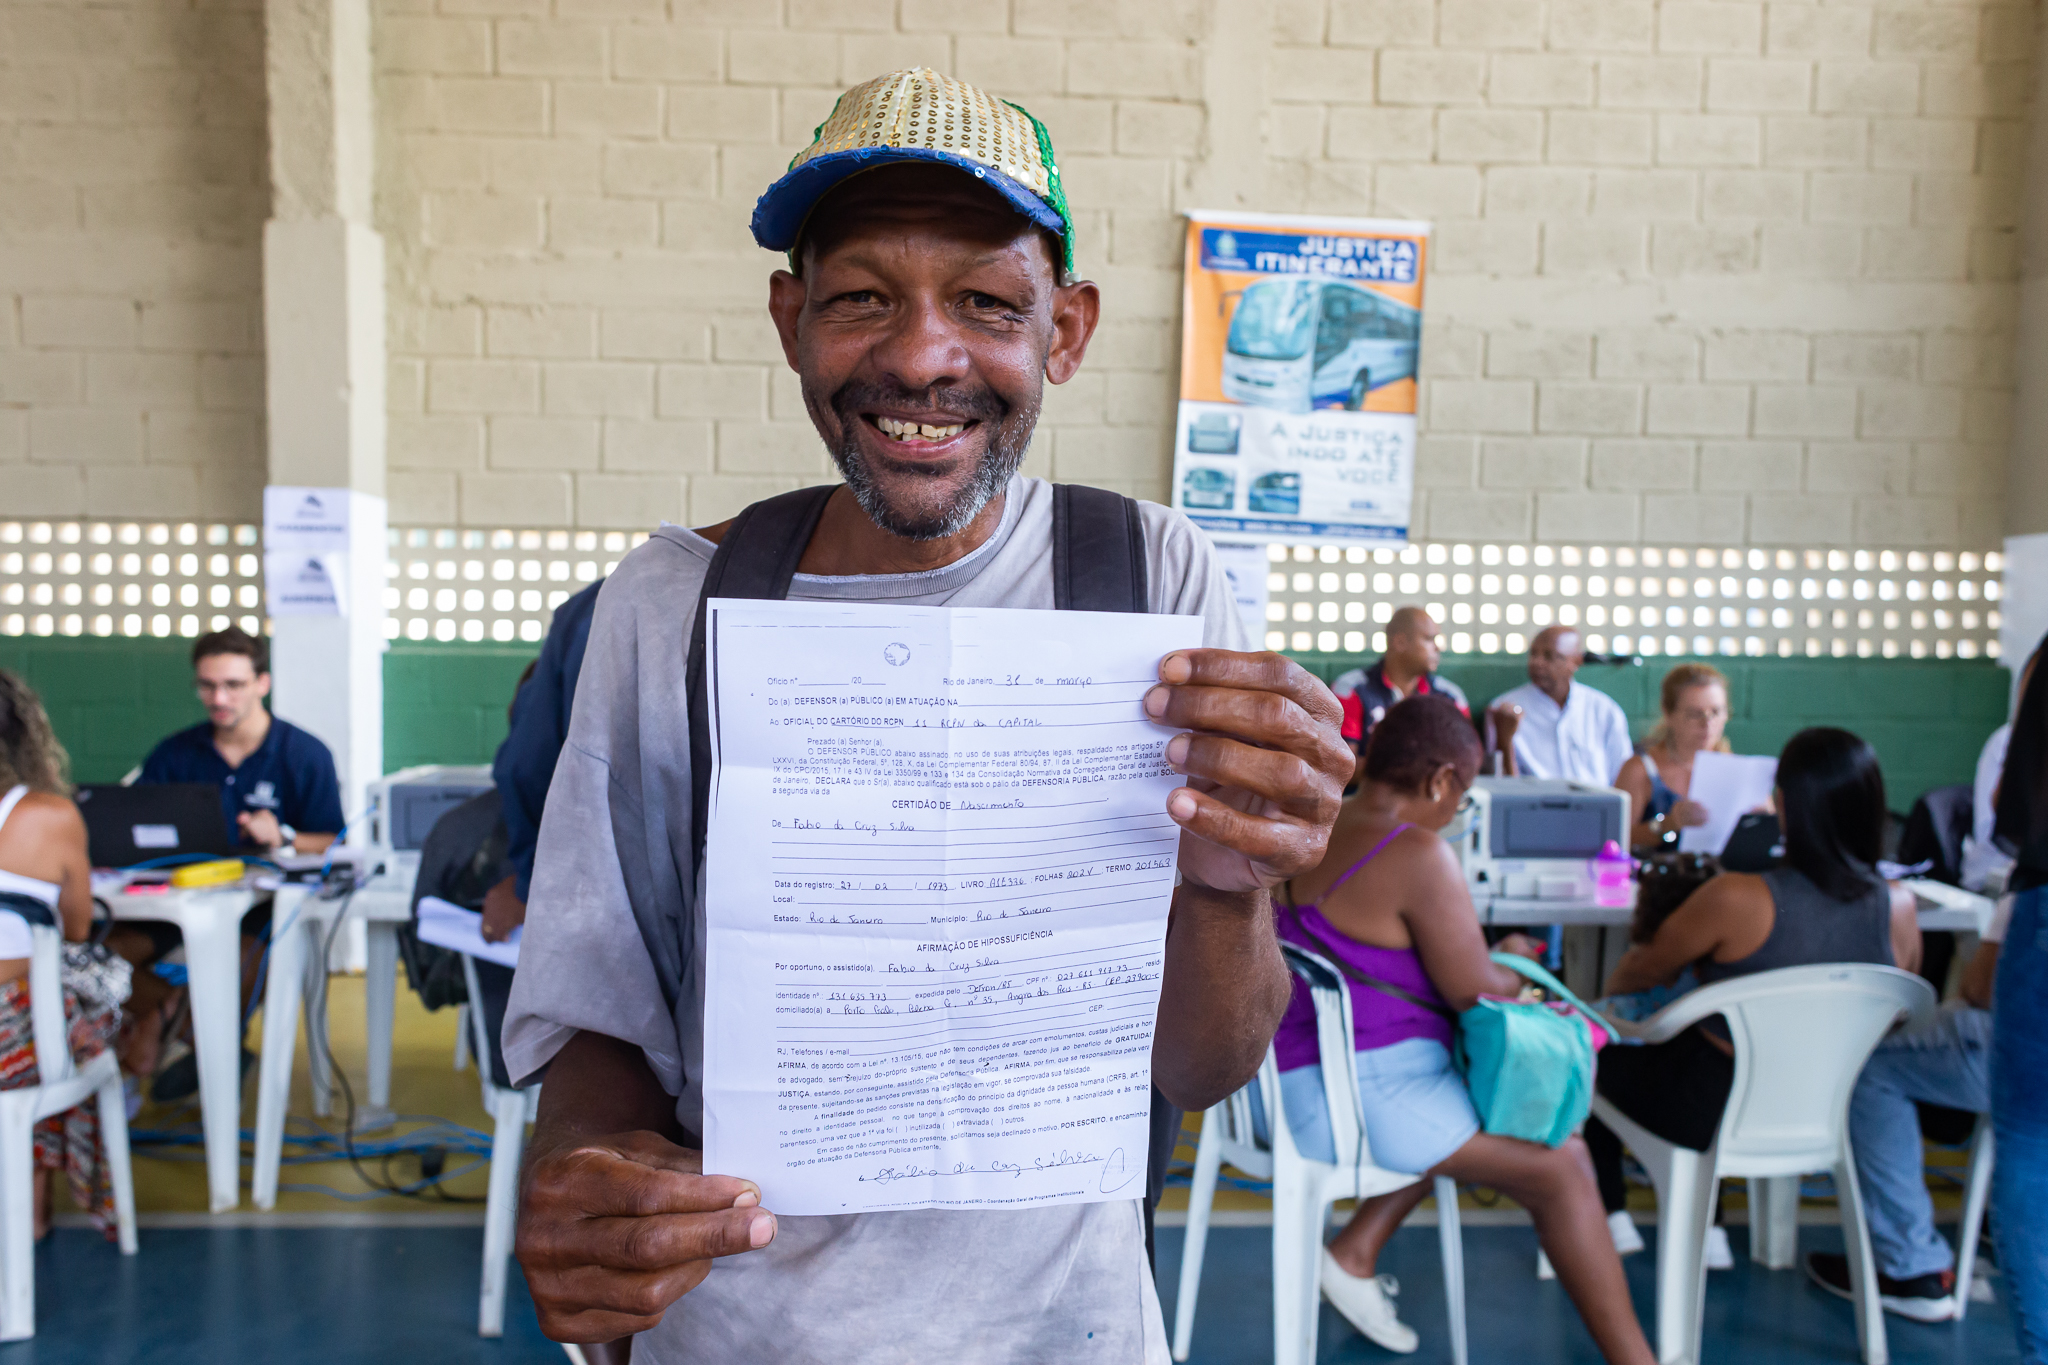 JUSTIÇA
ITINERANTE
A JUSTIÇA
INDO ATÉ
VOCÊ
Ofício nº /20 Rio de Janeiro, 31 de março
Do (a): DEFENSOR (a) PÚBLICO (a) EM ATUAÇÃO NA
Ao OFICIAL DO CARTÓRIO DO RCPN 11 RCPN da CAPITAL
Prezado (a) Senhor (a),
O DEFENSOR PÚBLICO abaixo assinado, no uso de suas atribuições legais, respaldado nos artigos 5º,
LXXVI, da Constituição Federal, 5º, 128, X, da Lei Complementar Federal 80/94, 87, II da Lei Complementar Estadual
IX do CPC/2015, 17 I e 43 IV da Lei 3350/99 e 133 e 134 da Consolidação Normativa da Corregedoria Geral de Justiça
de Janeiro, DECLARA que o Sr(a), abaixo qualificado está sob o pálio da DEFENSORIA PÚBLICA, razão pela qual SOL
a segunda via da
CERTIDÃO DE Nascimento
De Fabio da Cruz Silva
Data do registro: 27 / 02 / 1973. LIVRO A1E336 : FOLHAS 202V. TERMO: 201.563
Local:
Estado: Rio de Janeiro, Município: Rio de Janeiro
AFIRMAÇÃO DE HIPOSSUFICIÊNCIA
Por oportuno, o assistido(a), Fabio da Cruz Silva
identidade nº.: 131 635 773, expedida pelo Detran/RJ, CPF nº.: 027 611 917 73, resid
domiciliado(a) a Porto Galo, nº 35, Angra dos Reis - RJ CEP 23900-0
CEP:
RJ, Telefones / e-mail
AFIRMA, de acordo com a Lei nº. 13.105/15, que não tem condições de arcar com emolumentos, custas judiciais e hon
de advogado, sem prejuízo do próprio sustento e de seus dependentes, fazendo jus ao benefício de GRATUIDA
JUSTIÇA, estando, por conseguinte, assistido pela Defensoria Pública. AFIRMA, por fim, que se responsabiliza pela veri
da presente, sujeitando-se às sanções previstas na legislação em vigor, se comprovada sua falsidade.
A finalidade do pedido consiste na densificação do princípio da dignidade da pessoa humana (CRFB, art. 1º
no direito a identidade pessoal, no que tange à comprovação dos direitos ao nome, à nacionalidade e às relaç
parentesco, uma vez que a 1ª via foi ( ) inutilizada ( ) extraviada ( ) outros.
Em caso de não cumprimento do presente, solicitamos seja declinado o motivo, POR ESCRITO, e encaminha
órgão de atuação da Defensoria Pública emitente.
Fábio da Cruz Silva
RIO DE JANEIRO – Coordenação Geral de Programas Institucionais